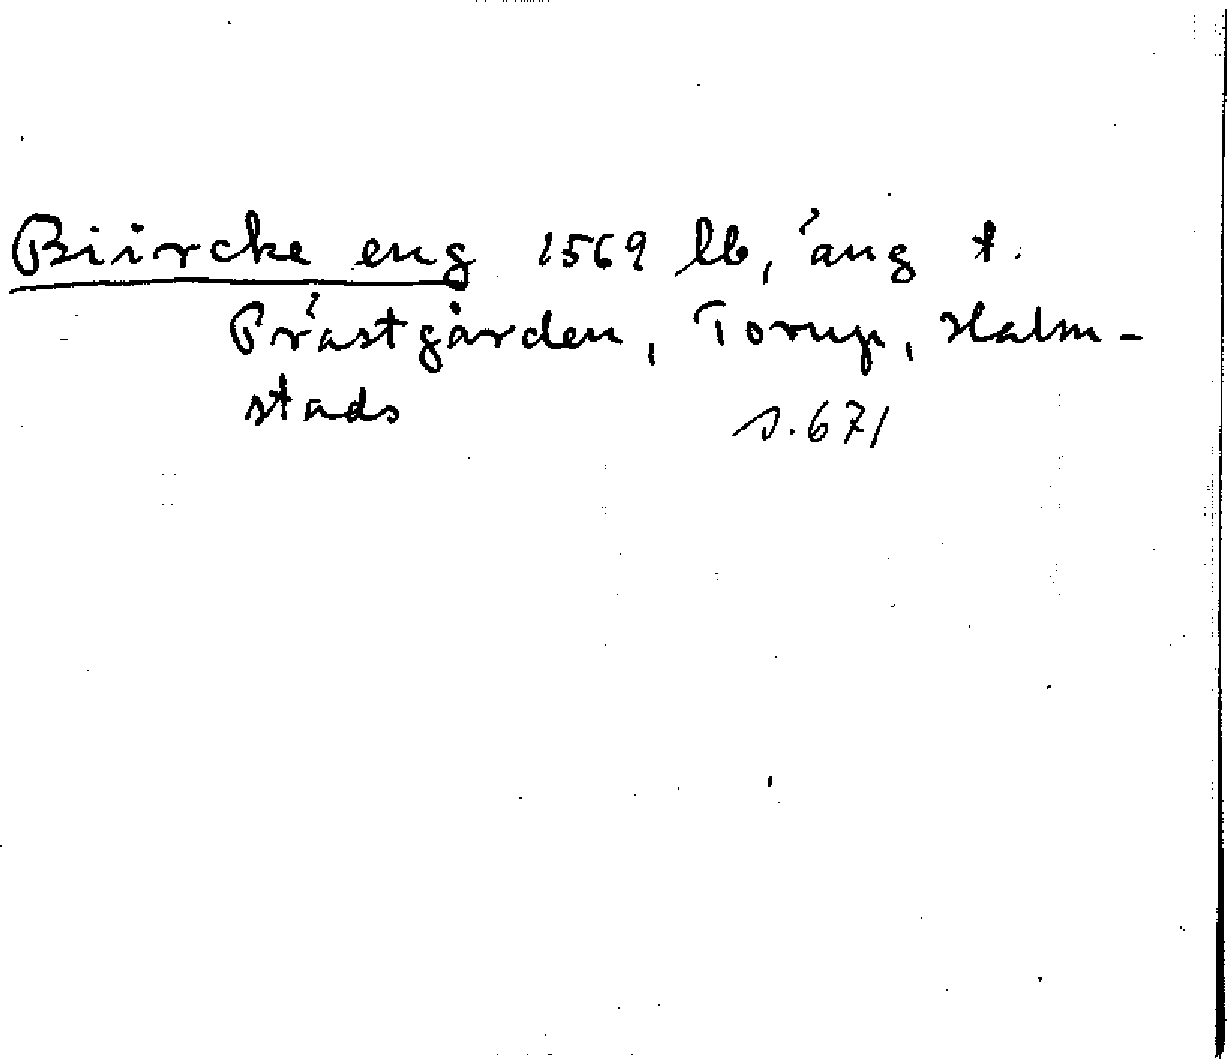 Biircke eng 1569 lb, äng t.
Prästgården, Torup, Halm-
stads s. 671